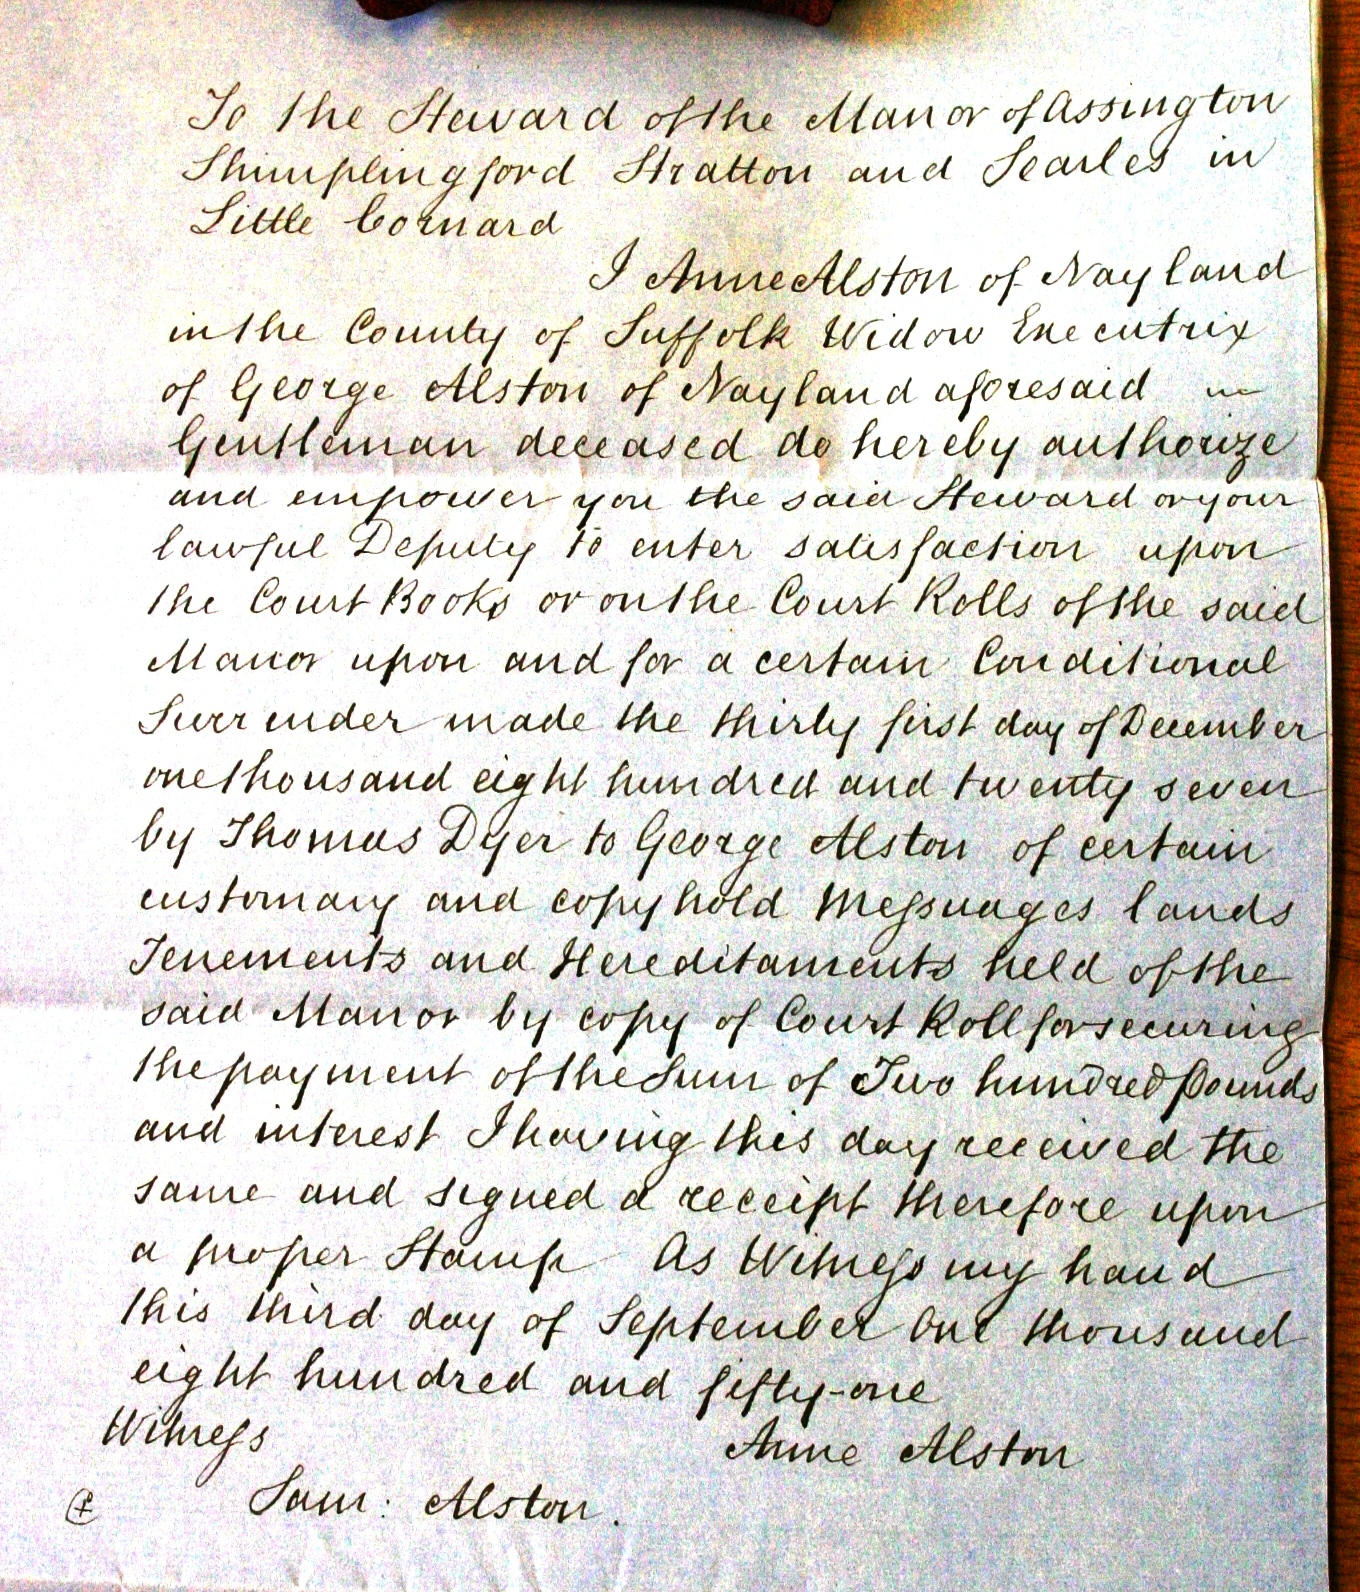 To the Steward of the Manor of Assington
Shimplingford Stratton and Searles in
Little Cornard
I Anne Alston of Nayland
in the County of Suffolk Widow Executrix
of George Alston of Nayland aforesaid
Gentleman deceased do hereby authorize
and empower you the said Steward or your
lawful Deputy to enter satisfaction upon
the Court Books or on the Court Rolls of the said
Manor upon and for a certain Conditional
Surrender made the thirty first day of December
one thousand eight hundred and twenty seven
by Thomas Dyer to George Alston of certain
customary and copyhold Messuages lands
Tenements and Hereditaments held of the
said Manor by copy of Court Roll for securing
the payment of the Sum of Two hundred pounds
and interest I having this day received the
same and signed a receipt therefore upon
a proper Stamp As Witness my hand
this third day of September One thousand
eight hundred and fifty-one
Witness
Anne Alston
Sam: Alston.